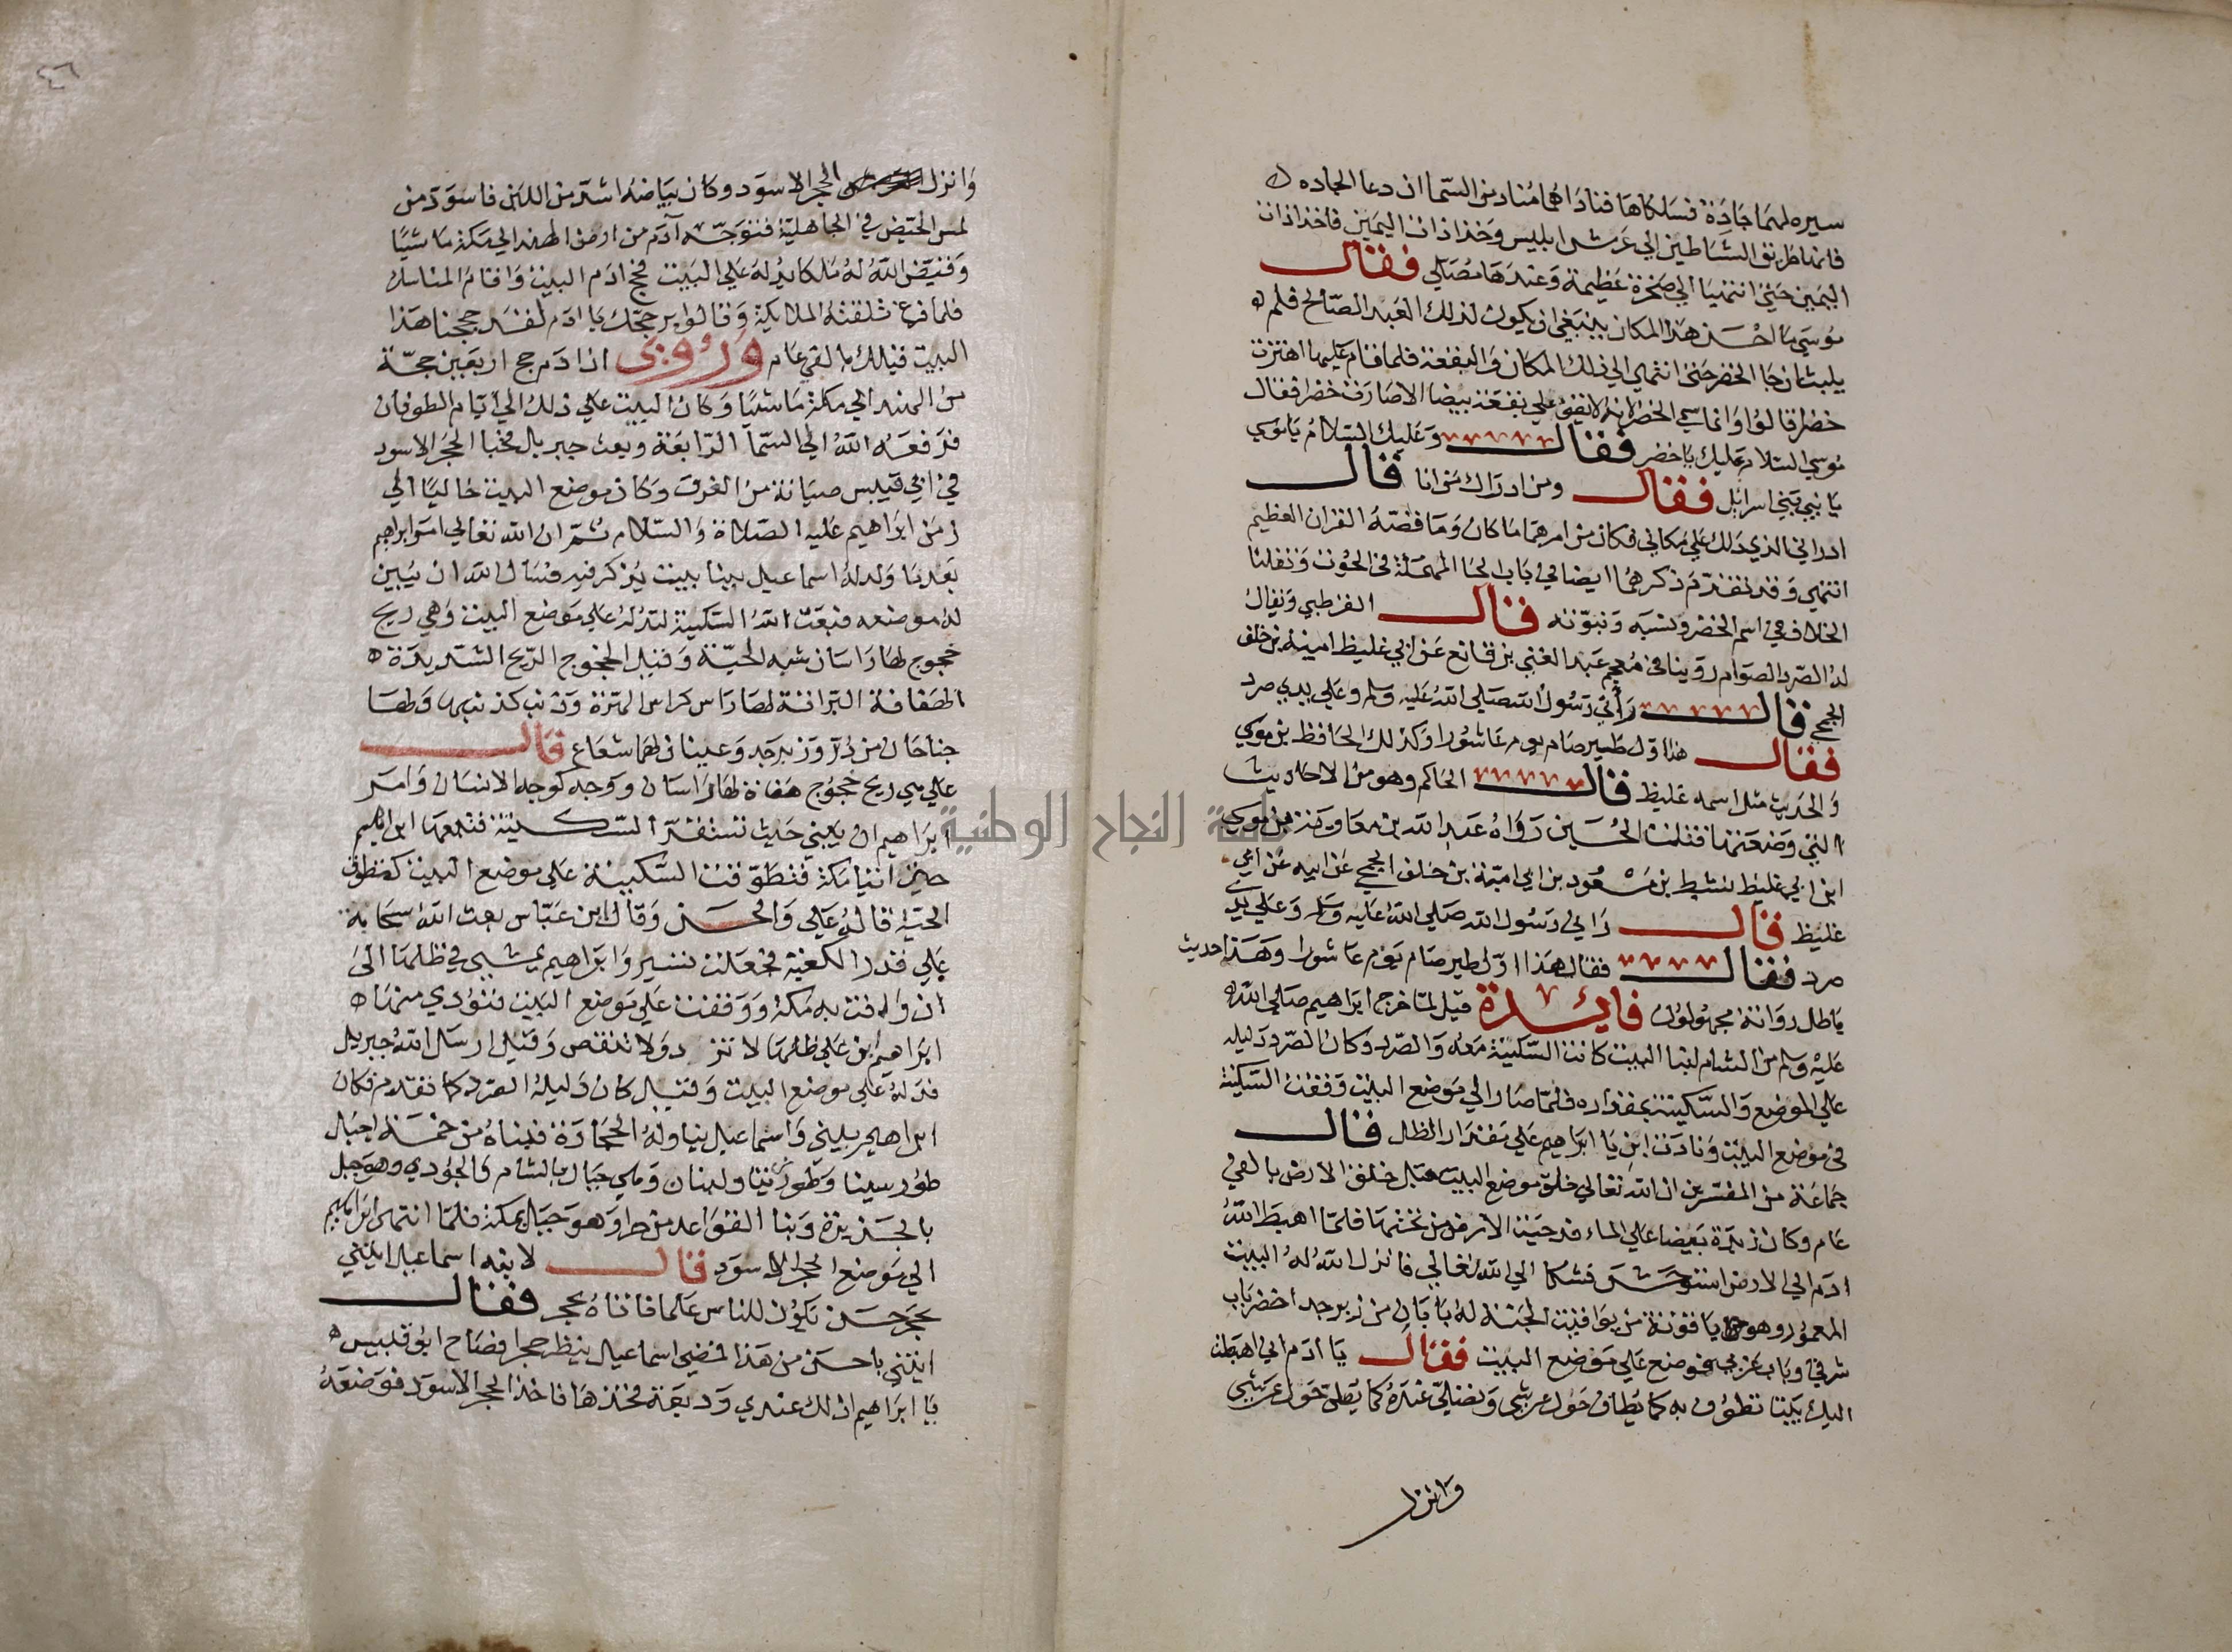 سيره لهما جادة فسلكاها فناداهما مناد من السما ان دعا الجاده
فانها طريق الشياطين الي عرش ابليس وخذا ذات اليمين فاخذا ذات
اليمين حتي انتهيا الي صخرة عظيمة وعندها مصلي فقال
موسي ما احسن هذا المكان ينبغي ان يكون لذلك العبد الصالح فلم
يلبثا ان جا الخضر حتي انتهي الي ذلك المكان والبقعة فلما قام عليها اهتزت
خضرا قالوا وانما سمي الخضر لانه لا يقف علي بقعة بيضا الا صارت خضرا فقال
موسي السلام عليك يا خضر فقال وعليك السلام يا موسي
يا نبي بني اسرايل فقال ومن ادراك من انا قال
ادراني الذي دلك علي مكاني فكان من امرهما ما كان وما قصه القران العظيم
انتهي وقد تقدم ذكرهما ايضا في باب الحا المهملة في الحوت ونقلنا
الخلاف في اسم الخضر ونسبه ونبوته قال القرطبي ويقال
له الصرد الصوام روينا في معجم عبد الغني بن قانع عن ابي غليظ امية بن خلف
الجمحي قال راني رسول الله صلي الله عليه وسلم وعلي يدي صرد
فقال هذا اول طير صام يوم عاشورا وكذلك الحافظ بن موسي
والحديث مثل اسمه غليظ قال الحاكم وهو من الاحاديث
التي وضعتها قتلت الحسين رواه عبد الله بن معاوية بن موسي
ابن ابي غليظ نشيط بن مسعود بن ابي امية بن خلف الجمحي عن ابيه عن ابي
غليظ قال راني رسول الله صلي الله عليه وسلم وعلي يدي
صرد فقال فقال هذا اول طير صام يوم عاشورا وهذا حديث
باطل رواته مجهولون فايدة قيل لما خرج ابراهيم صلي الله
عليه وسلم من الشام لبنا البيت كانت السكينة معه والصرد وكان الصرد دليله
علي الموضع والسكينة بمقداره فلما صار الي موضع البيت وقفت السكينة
في موضع البيت ونادت ابن يا ابراهيم علي مقدار الظل قال
جماعة من المفسرين ان الله تعالي خلق موضع البيت قبل خلق الارض بالفي
عام وكان زبدة بيضا علي الماء فدحيت الارض من تحتها فلما اهبط الله
ادم الي الارض استوحش فشكا الي الله تعالي فانزل الله له البيت
المعمور وهو من ياقوتة من يواقيت الجنة له بابان من زبرجد اخضر باب
شرقي وباب غربي فوضع علي موضع البيت فقال يا ادم اني اهبطت
اليك بيتا تطوف به كما يطاف حول عرشي وتصلي عنده كما يصلي حول عرشي
وانزل
٤٦
وانزل الحجر الاسود وكان بياضه اشد من اللبن فاسود من
لمس الحيض في الجاهلية فتوجه آدم من ارض الهند الي مكة ماشيا
وقيض الله له ملكا يدله علي البيت فحج ادم البيت واقام المناسك
فلما فرغ تلقته الملايكة وقالوا بر حجك يا ادم لقد حججنا هذا
البيت قبلك بالفي عام وروي ان ادم حج اربعين حجة
من الهند الي مكة ماشيا وكان البيت علي ذلك الي ايام الطوفان
فرفعه الله الي السمآ الرابعة وبعث جبريل فخبا الحجر الاسود
في ابي قبيس صيانة من الغرق وكان موضع البيت خاليا الي
زمن ابراهيم عليه الصلاة والسلام ثم ان الله تعالي امر ابراهيم
بعد ما ولد له اسماعيل ببنا بيت يذكر فيه فسال الله ان يبين
له موضعه فبعث الله السكينة لتدله علي موضع البيت وهي ريح
خجوج لها راسان شبه الحية وقيل الخجوج الريح الشديدة
الهفافة البراقة لها راس كراس الهرة وذنب كذنبها ولها
جناحان من در وزبرجد وعينان لهما شعاع قال
علي هي ريح خجوج هفافة لها راسان ووجه كوجه الانسان وامر
ابراهيم ان يبني حيث تستقر السكينة فتبعها ابراهيم
حتي اتيا مكة فتطوقت السكينة علي موضع البيت كتطوق
الحية قاله علي والحسن وقال ابن عباس بعث الله سحابة
علي قدر الكعبة فجعلت تسير وابراهيم يمشي في ظلها الي
ان وافت به مكة ووقفت علي موضع البيت فنودي منها
ابراهيم ابن علي ظلها لا تزد ولا تنقص وقيل ارسل الله جبريل
فدله علي موضع البيت وقيل كان دليله الصرد كما تقدم فكان
ابراهيم يبني واسماعيل يناوله الحجارة فبناه من خمسة اجبال
طور سينا وطور زيتا ولبنان وهي جبال بالشام والجودي وهو جبل
بالجزيرة وبنا القواعد من حرا وهو جبل بمكة فلما انتهي ابراهيم
الي موضع الحجر الاسود قال لابنه اسماعيل ايتني
بحجر حسن يكون للناس علما فاتاه بحجر فقال
ايتني باحسن من هذا فمضي اسماعيل ينظر حجرا فصاح ابو قبيس
يا ابراهيم ان لك عندي وديعة فخذها فاخذ الحجر الاسود فوضعه
جامعة النجاح الوطنية